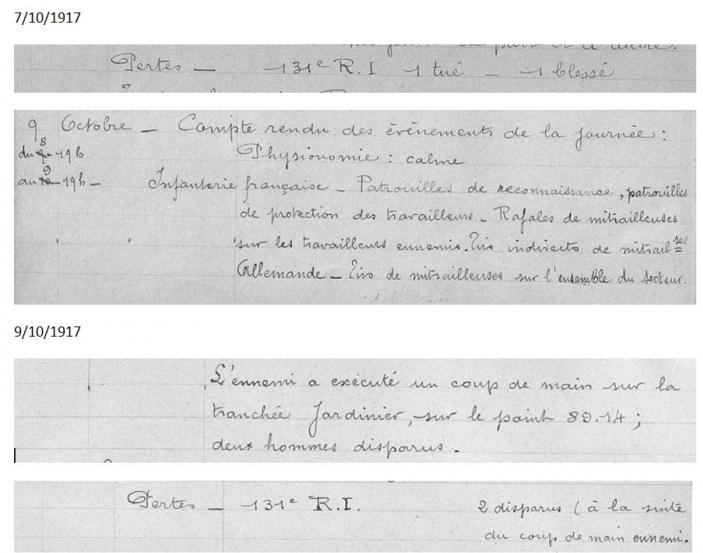 7/10/1917
Pertes — 131e R.I 1 tué — 1 blessé
9 Octobre — Compte rendu des évènements de la journée :
du 8 19h
Physionomie : calme
au 9 19h — Infanterie française — Patrouilles de reconnaissance, patrouilles
de protection des travailleurs — Rafales de mitrailleuses
sur les travailleurs ennemis. Tirs indirects de mitrailses
Allemande — Tirs de mitrailleuses sur l'ensemble du secteur.
9/10/1917
L'ennemi a exécuté un coup de main sur la
tranchée Jardinier, sur le point 89.14 ;
deux hommes disparus.
Pertes — 131e R.I. 2 disparus (à la suite
du coup de main ennemi.